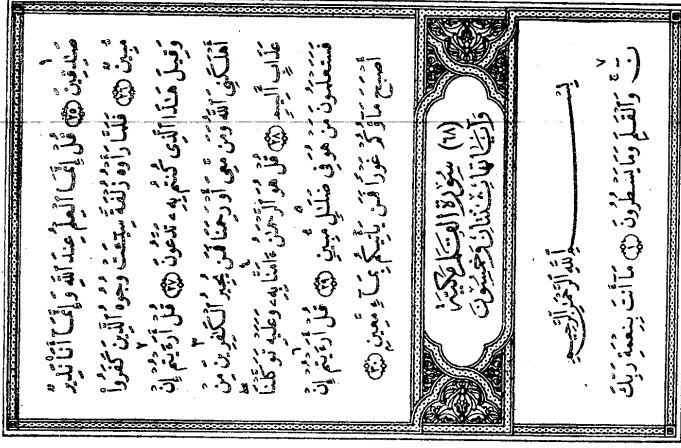 صَـٰدِقِينَ ﴿٢٥﴾ قُلْ إِنَّمَا ٱلْعِلْمُ عِندَ ٱللَّهِ وَإِنَّمَآ أَنَا۠ نَذِيرٌ
مُّبِينٌ ﴿٢٦﴾ فَلَمَّا رَأَوْهُ زُلْفَةً سِيٓـَٔتْ وُجُوهُ ٱلَّذِينَ كَفَرُوا۟
وَقِيلَ هَـٰذَا ٱلَّذِى كُنتُم بِهِۦ تَدَّعُونَ ﴿٢٧﴾ قُلْ أَرَءَيْتُمْ إِنْ
أَهْلَكَنِىَ ٱللَّهُ وَمَن مَّعِىَ أَوْ رَحِمَنَا فَمَن يُجِيرُ ٱلْكَـٰفِرِينَ مِنْ
عَذَابٍ أَلِيمٍ ﴿٢٨﴾ قُلْ هُوَ ٱلرَّحْمَـٰنُ ءَامَنَّا بِهِۦ وَعَلَيْهِ تَوَكَّلْنَا
فَسَتَعْلَمُونَ مَنْ هُوَ فِى ضَلَـٰلٍ مُّبِينٍ ﴿٢٩﴾ قُلْ أَرَءَيْتُمْ إِنْ
أَصْبَحَ مَآؤُكُمْ غَوْرًا فَمَن يَأْتِيكُم بِمَآءٍ مَّعِينٍ ﴿٣٠﴾
(٦٨) سُورَةُ القَلَمِ مَكِيَّةٌ
وَآيَاتُهَا ثِنْتَانِ وَخَمْسُونَ
بِسْمِ ٱللَّهِ ٱلرَّحْمَـٰنِ ٱلرَّحِيمِ
نٓ ۚ وَٱلْقَلَمِ وَمَا يَسْطُرُونَ ﴿١﴾ مَآ أَنتَ بِنِعْمَةِ رَبِّكَ